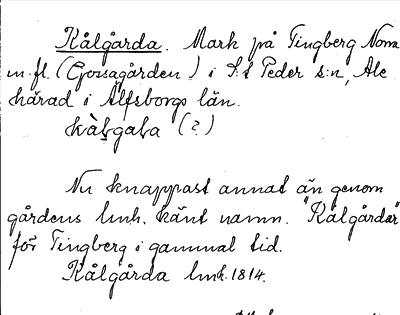 Kålgårda. Mark på Tingberg Norra
m.fl. (Gorsagården) i S:t Peder s:n, Ale
härad i Älfsborgs län.
kàlgala (?)
Nu knappast annat än genom
gårdens lmh. känt namn. "Kålgårdar"
för Tingberg i gammal tid.
Kålgårda lmh. 1814.